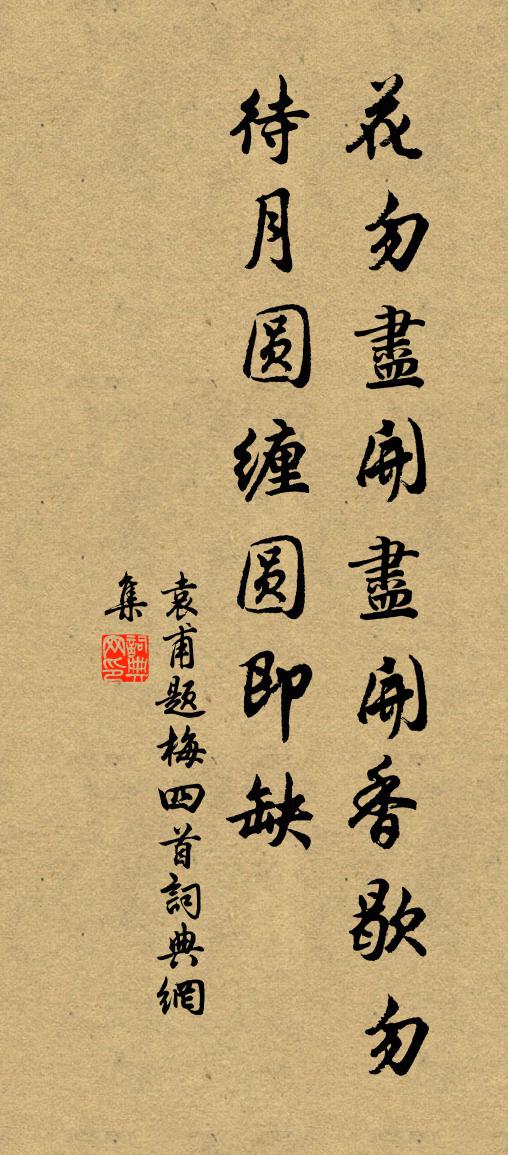 花勿盡開盡開香歇勿
待月圆缠圆即缺
袁甫题梅四首詞典網
集
詞典
网印